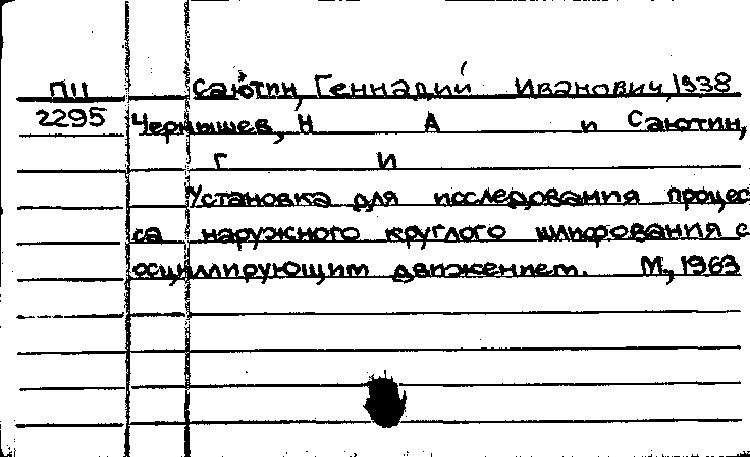 П11 Саютин, Геннадий Иванович, 1938
2295 Чернышев, Н А и Саютин,
Г И
Установка для исследования процес
са наружного круглого шлифования с
осциллирующим движением. М., 1963